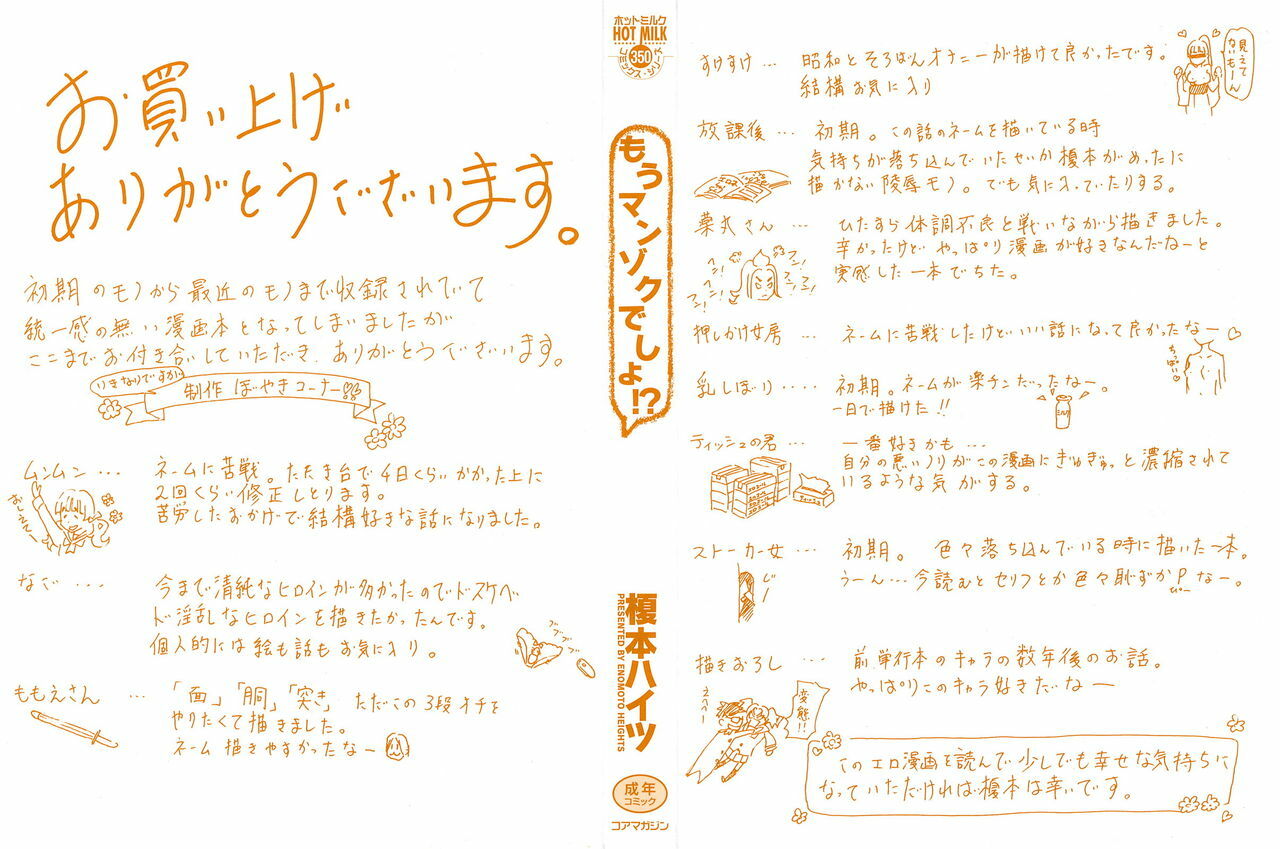 お買い上げ
ありがとうございます。
初期のモノから最近のモノまで収録されていて
統一感の無い漫画本となってしまいましたが
ここまでお付き合いしていただき、ありがとうございます。
いきなりですが
制作 ぼやきコーナー
ムンムン…
ネームに苦戦。たたき台で4日くらいかかった上に
2回くらい修正しとります。
苦労したおかげで結構好きな話になりました。
おしえてー
なご…
今まで清純なヒロインが多かったのでドスケベ
ド淫乱なヒロインを描きたかったんです。
個人的には絵も話もお気に入り。
ブブブブ
ももえさん…
「面」「胴」「突き」ただこの3段オチを
やりたくて描きました。
ネーム描きやすかったなー
ホットミルク
HOT MILK
350
コミックス・シリーズ
もうマンゾクでしょ!?
榎本ハイツ
PRESENTED BY ENOMOTO HEIGHTS
成年
コミック
コアマガジン
すけすけ…
昭和とそろばんオナニーが描けて良かったです。
結構お気に入り
見えて
ないもーん
放課後…
初期。この話のネームを描いている時
気持ちが落ち込んでいたせいか榎本がめったに
描かない陵辱モノ。でも気に入っていたりする。
薬丸さん…
ひたすら体調不良と戦いながら描きました。
辛かったけど やっぱり漫画が好きなんだなーと
実感した一本でちた。
フン!
フン!
フン!
フン!
押しかけ女房…
ネームに苦戦したけどいい話になって良かったなー♡
ちっぱい
乳しぼり‥‥
初期。ネームが楽チンだったなー。
一日で描けた!!
ミルク
ティッシュの君…
一番好きかも…
自分の悪いノリがこの漫画にぎゅぎゅっと濃縮されて
いるような気がする。
ティッシュ
ストーカー女…
初期。色々落ち込んでいる時に描いた一本。
うーん…今読むとセリフとか色々恥ずかPなー。
ぴー
じー
描きおろし…
前単行本のキャラの数年後のお話。
やっぱりこのキャラ好きだなー
えへへー
変態!!
このエロ漫画を読んで少しでも幸せな気持ちに
なっていただければ榎本は幸いです。